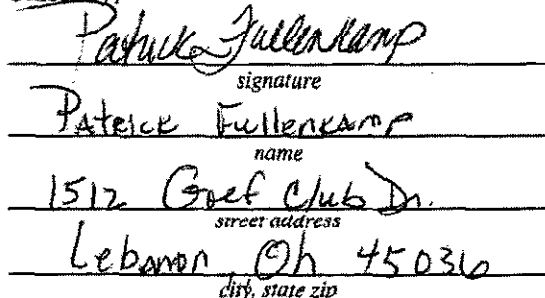 Patrick Fullenkamp
signature
Patrick Fullenkamp
name
1512 Golf Club Dr.
street address
Lebanon, Oh 45036
city, state zip